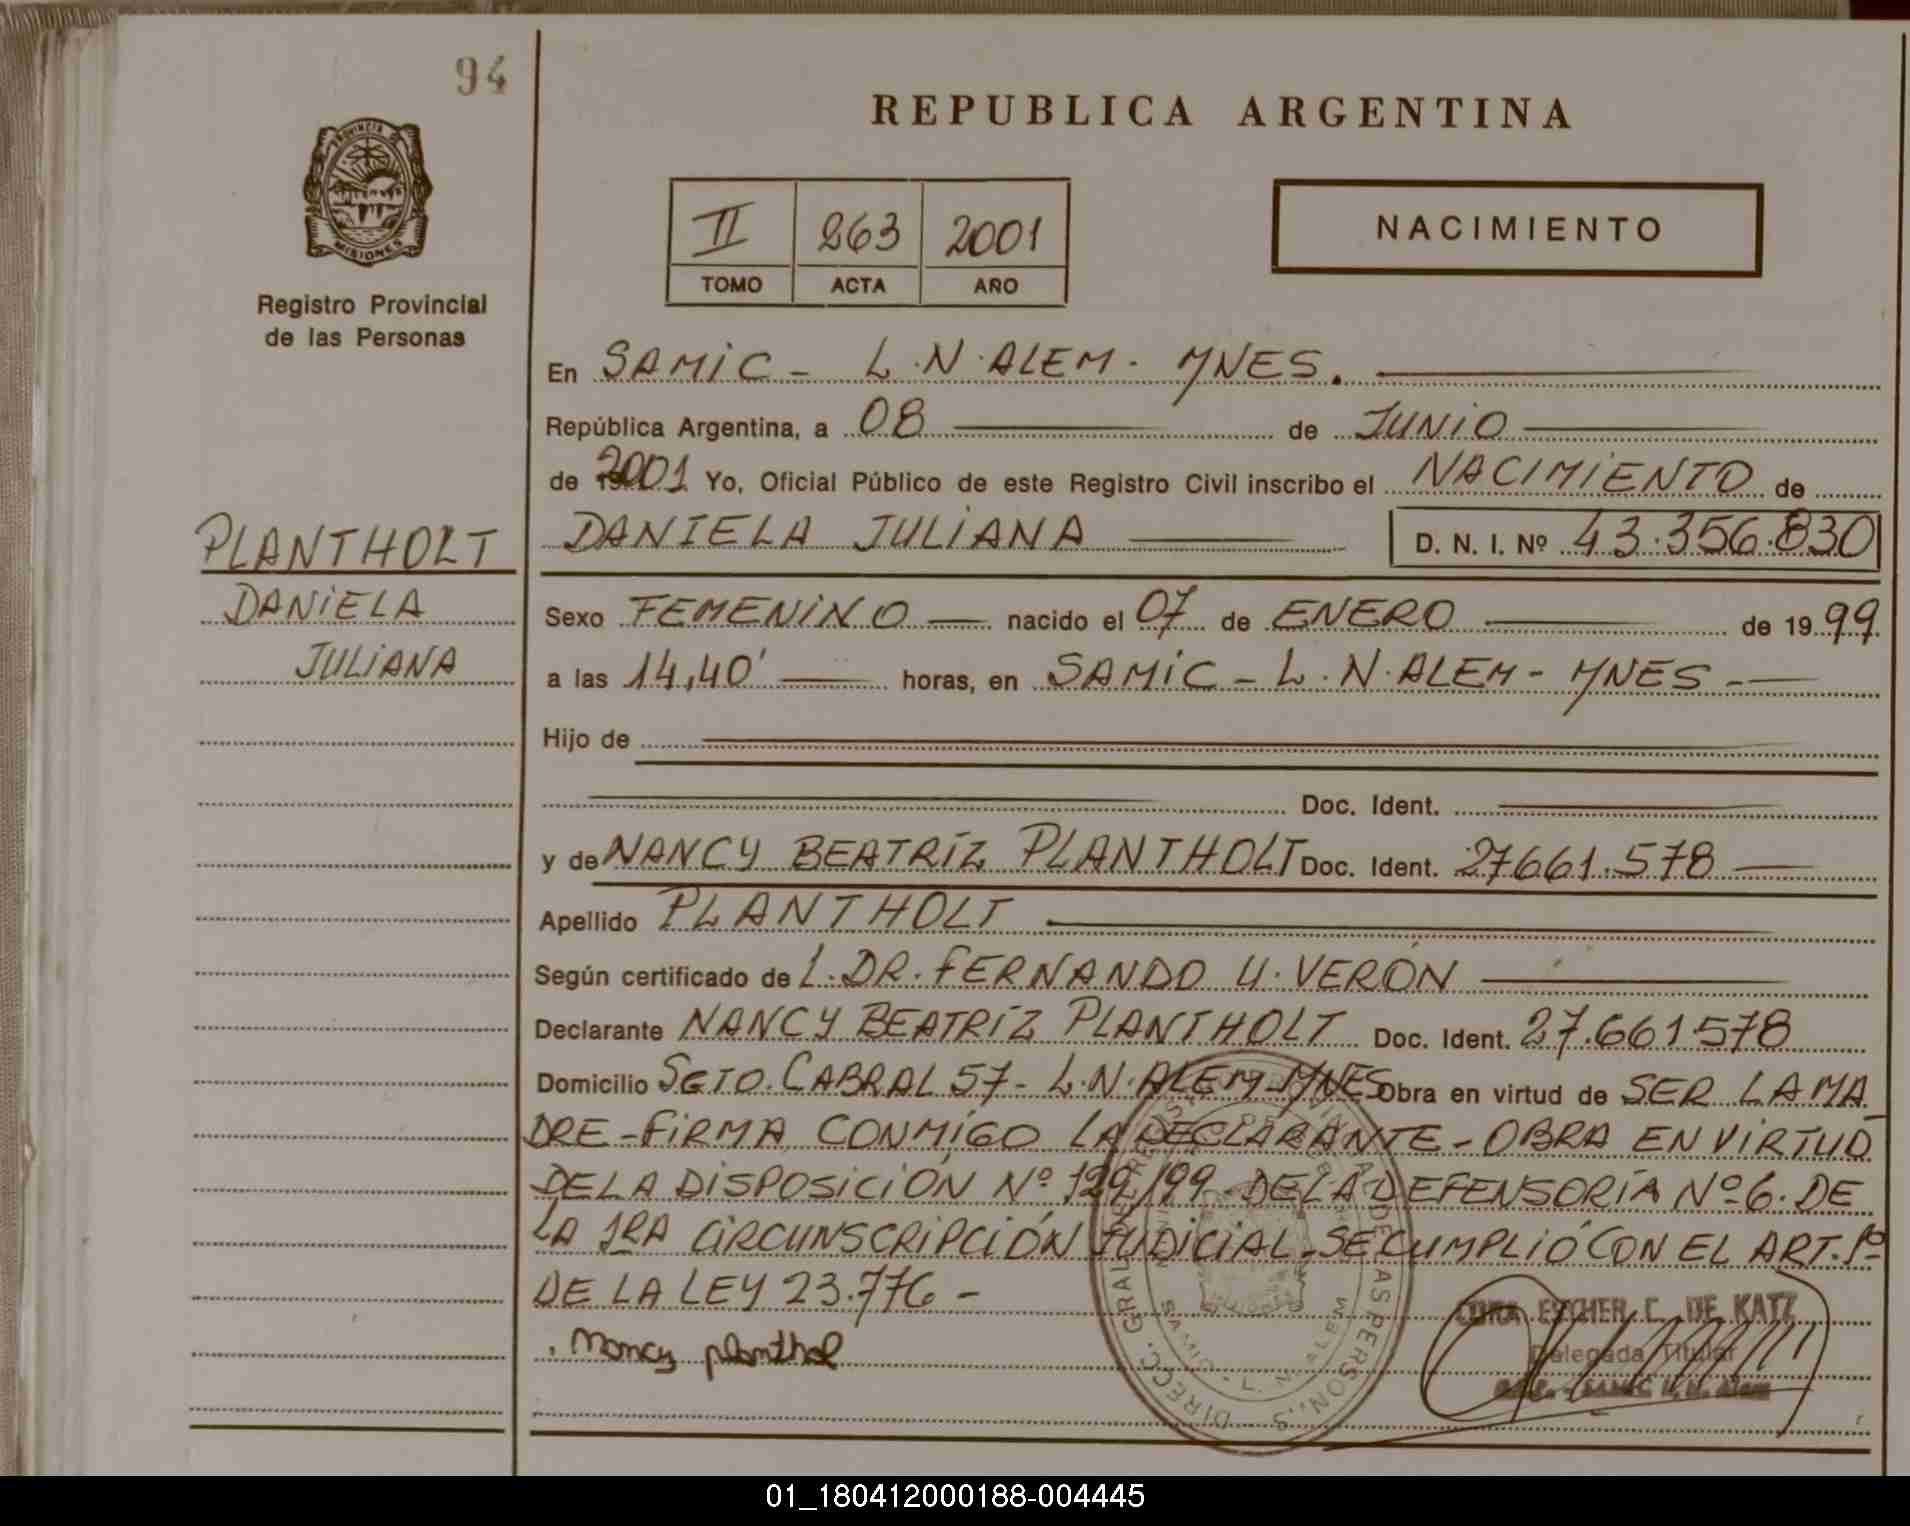 94
REPUBLICA ARGENTINA
PROVINCIA DE
MISIONES
Registro Provincial
de las Personas
II 263 2001
TOMO ACTA AÑO
NACIMIENTO
En SAMIC - L.N.ALEM - MNES.
República Argentina, a 08 de JUNIO
de 2001 Yo, Oficial Público de este Registro Civil inscribo el NACIMIENTO de
PLANTHOLT
DANIELA JULIANA D. N. I. Nº 43.356.830
DANIELA
JULIANA
Sexo FEMENINO nacido el 07 de ENERO de 1999
a las 14,40' horas, en SAMIC - L.N.ALEM - MNES -
Hijo de
Doc. Ident.
y de NANCY BEATRÍZ PLANTHOLT Doc. Ident. 27661.578
Apellido PLANTHOLT
Según certificado de L.DR.FERNANDO U.VERÓN
Declarante NANCY BEATRÍZ PLANTHOLT Doc. Ident. 27.661578
Domicilio SGTO.CABRAL 57- L.N.ALEM-MNES Obra en virtud de SER LA MA
DRE-FIRMA CONMIGO LA DECLARANTE - OBRA EN VIRTUD
DE LA DISPOSICIÓN Nº 129/99 DE LA DEFENSORÍA Nº 6. DE
LA 1RA CIRCUNSCRIPCIÓN JUDICIAL-SE CUMPLIÓ CON EL ART. 1º
DE LA LEY 23.776 -
Nancy planthol
ESTHER C. DE KATZ
Delegada Titular
SAMIC L. N. Alem
DIREC. GRAL. DEL REGISTRO PROVINCIAL DE LAS PERSONAS
SAMIC - L. N. ALEM
01_180412000188-004445